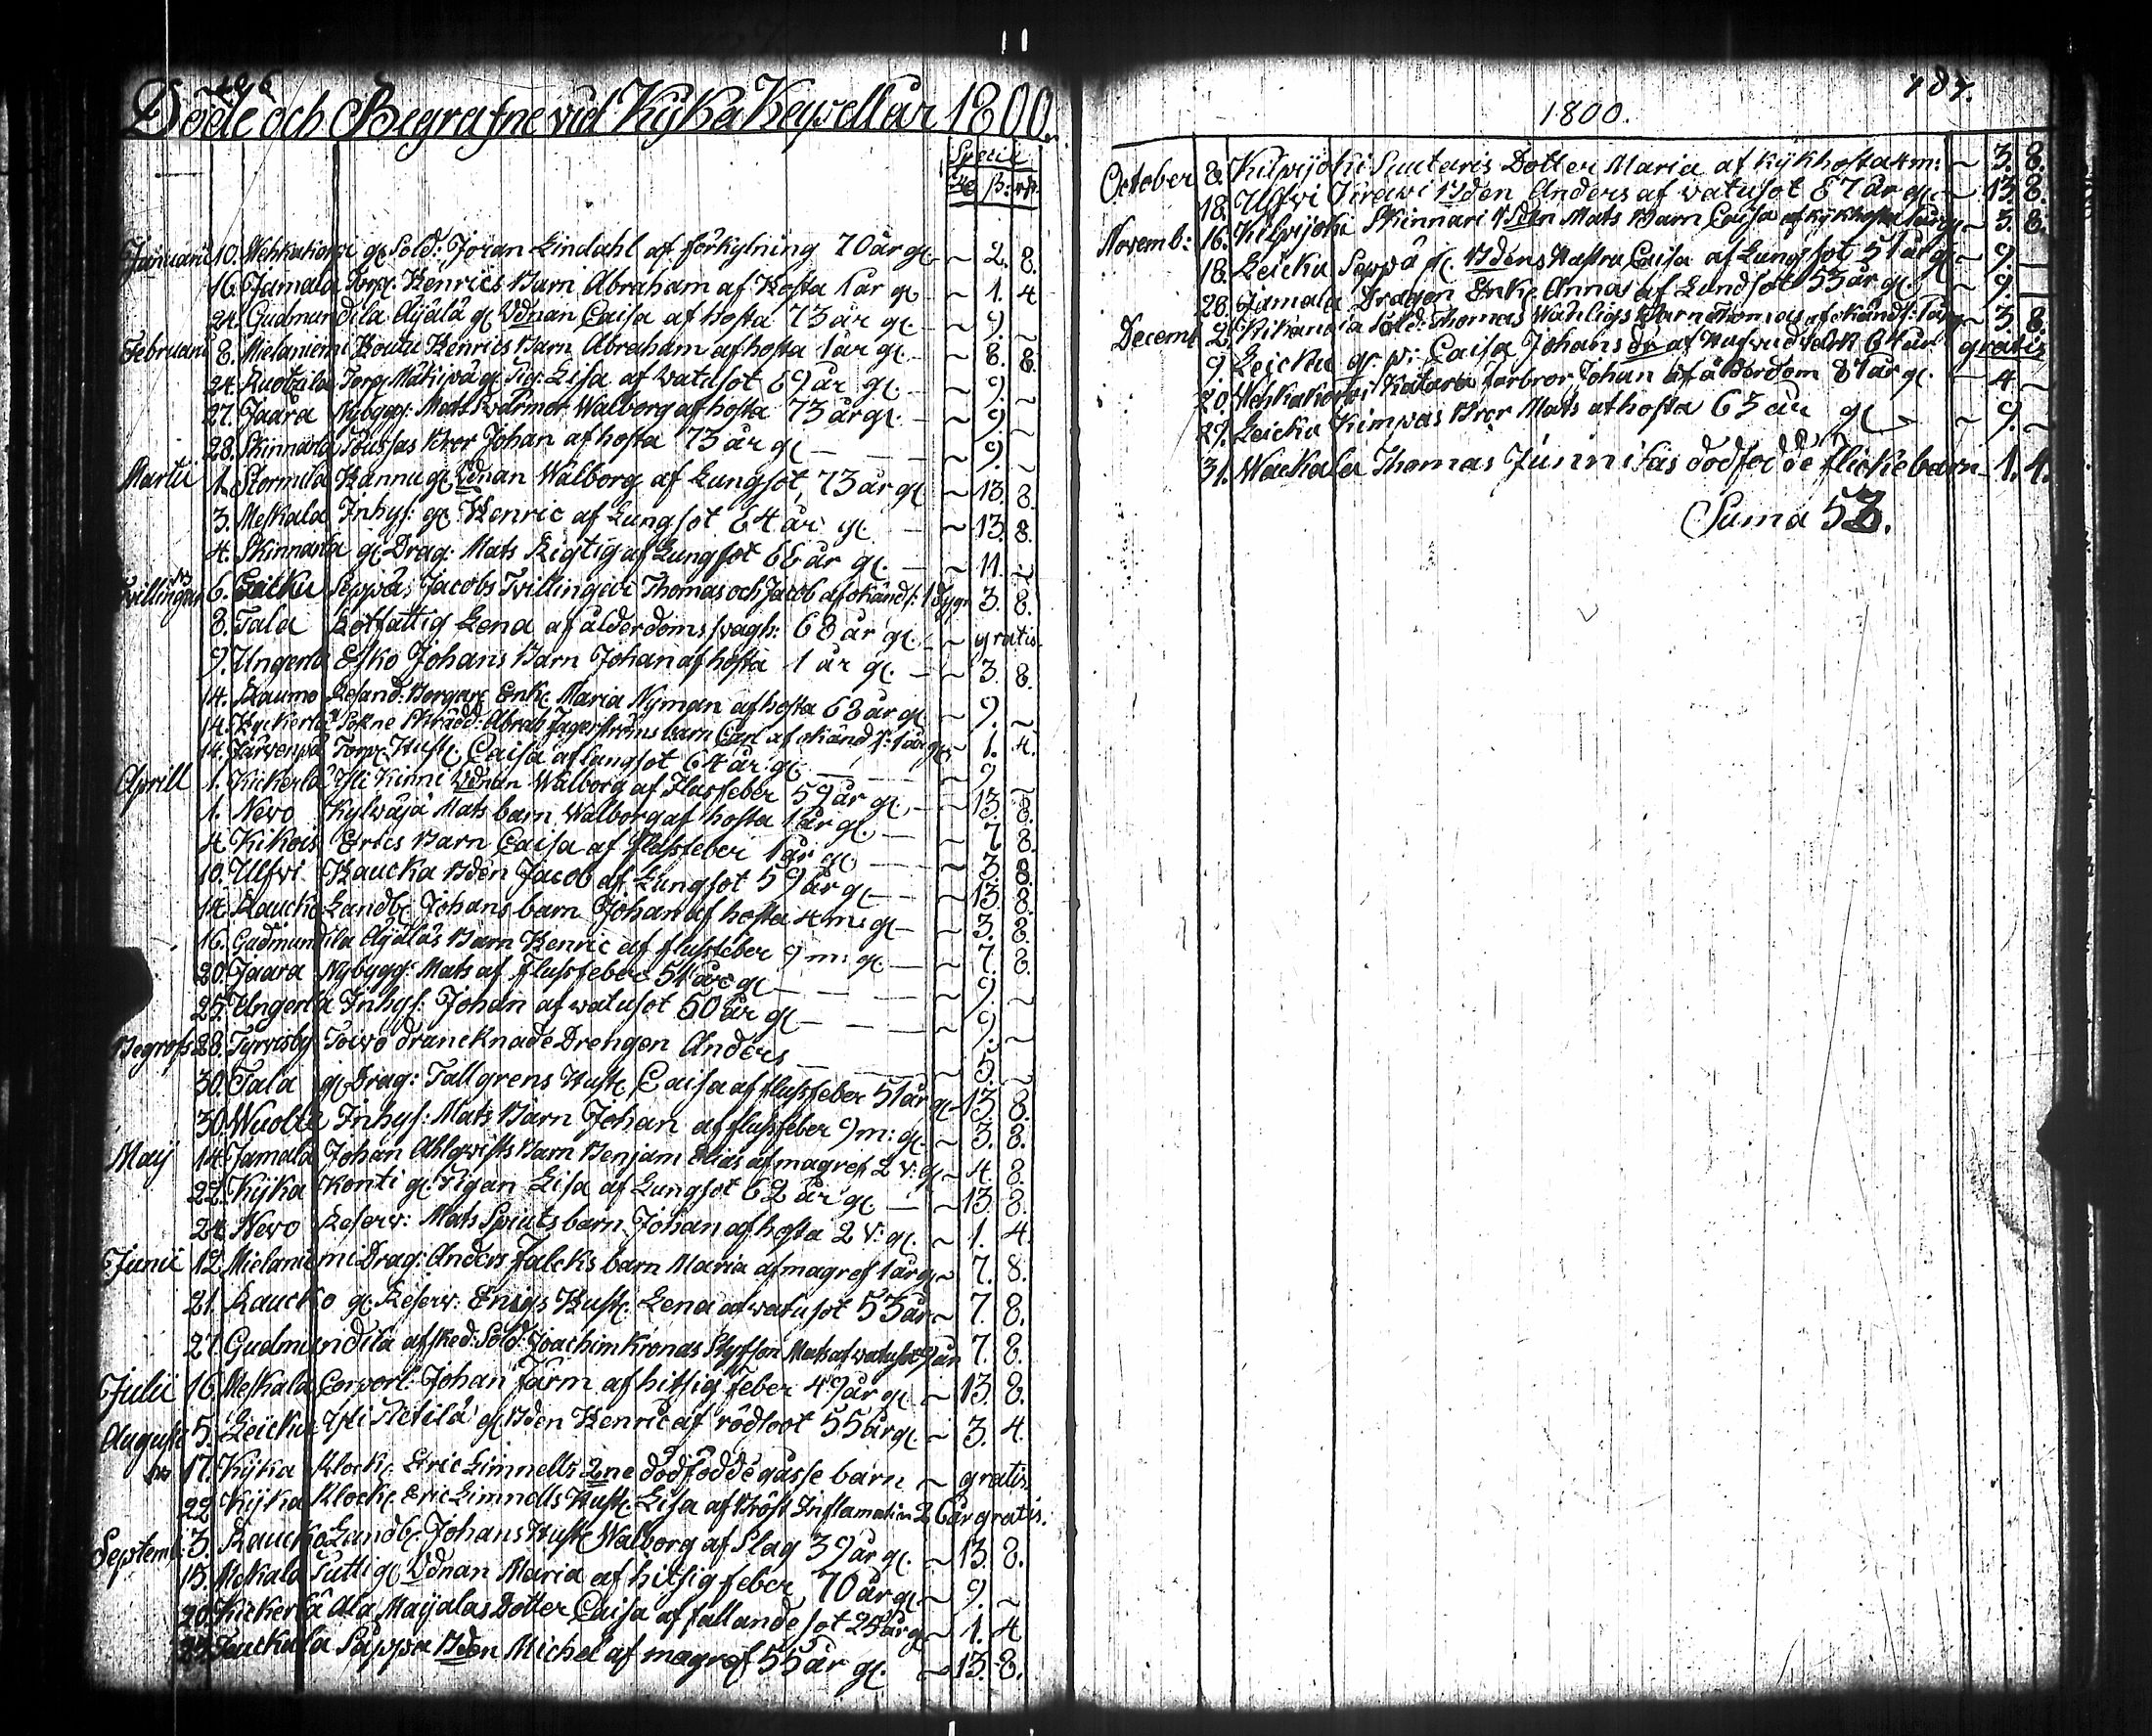 186
Döde och Begrafne vid Kyka Kapell år 1800.
Specie
ß: rst.
Januarii 10. gl. Sold: Jöran Lindahl af förkylning 70 år gl. ~ 2. 8.
16. Jamala Torp. Henrics Barn Abraham af Hosta 1 år gl. ~ 1. 4
24. Gudmundila Äijälä gl. Vdnan Caisa af hosta 73 år gl. ~ 9. ~
Februarii 8. Mielaniemi Henrics Barn Abraham af hosta 1 år gl. ~ 8. 8.
24. Ruotzila Torp. Mäkipä gl. Pig. Lisa af watusot 69 år gl. ~ 9. ~
27. Jaara Nybygg: Mats Swärmor Walborg af hosta 73 år gl. ~ 9. ~
28. Skinnarla Bror Johan af hosta 73 år gl ~ 9. ~
Martii 1. Stormila Hannu gl. Vdnan Walborg af Lungsot, 73 år gl ~ 13. 8.
3. Meskala Inhys: gl. Henric af Lungsot 64 år gl. ~ 13. 8.
4. Skinnarla gl. Drag: Mats Rigtig af Lungsot 66 år gl. ~ 11. ~
Tvillingar 6. Leiku Seppäs Jacobs Tvillingar Thomas och Jacob af okänd s: 1 dygn 3. 8.
8. Tala Rotfattig Lena af ålderdoms swagh: 68 år gl. ~ gratis.
9. Ungerla Esko Johans Barn Johan af hosta 1 år gl. ~ 3. 8.
14. Raumo Borgare Enk. Maria Nyman af hosta 68 år gl ~ 9. ~
14. Sokne Skrädd: Abrah Jagerströms barn Carl af okänd s: 1 år gl ~ 1. 4.
14. Järvenpä Torp. Hust. Caisa af Lungsot 64 år gl. ~ 9 ~
Aprill 1. Kickerlä Yli Kinni Vdnan Walborg af Flussfeber 59 år gl. ~ 13. 8.
1. Nevo Kylwäjä Mats barn Walborg af hosta 1 år gl. ~ 7 8.
4. Kikois Erics Barn Caisa af flussfeber 1 år gl ~ 3. 8.
10. Ulfvi Haucka Bden Jacob af Lungsot 59 år gl ~ 13. 8.
14. Raucko Landb. Johans barn Johan af hosta 4 m: gl ~ 3. 8.
16. Gudmundila Äijäläs Barn Henric af flussfeber 9 m: gl ~ 7. 8.
20. Jaara Nybygg: Mats af Flussfeber 51 år gl ~ 9. ~
25. Ungerla Inhys: Johan af watusot 50 år gl ~ 9. ~
Begrofs 28. Tyrvisby Toivo drancknade Drengen Anders ~ 5. ~
30. Tala gl. Drag: Tallgrens Hust. Caisa af flussfeber 51 år gl 13. 8.
30. Wuolle Inhys: Mats Barn Johan af flussfeber 9 m: gl. ~ 3. 8.
Maij 14. Jamala Johan Ahlqvists Barn Benjam Elias af magref 2 v: gl ~ 4. 8.
22. Kyka Konti gl. Pigan Lisa af Lungsot 62 år gl. ~ 13. 8.
24. Nevo Reserv: Mats Sprists barn Johan af hosta 2 v: gl. ~ 1. 4.
Junii 12. Mielaniemi Drag: Anders Falcks barn Maria af magref 1 år gl ~ 7. 8.
21. Raucko gl. Reserv: Enigs Hust. Lena af watusot 53 år ~ 7. 8.
27. Gudmundila afsked: Sold: Joachim Kronas Styfson Mats af watusot 9 år 7. 8.
Julii 16. Meskala Corporl: Johan Färm af hitsig feber 49 år gl. ~ 13. 8.
Augusti 5. Leicku Yli gl Bden Henric af rödsoot 55 år gl. ~ 3. 4.
17. Kyka Klock. Eric Limnells 2ne dödfödde gåsse barn ~ gratis.
22. Kyka Klock. Eric Limnells Hust. Lisa af Bröst Inflamation 26 år gratis.
Septemb: 3. Raucko Landb. Johans Hust Walborg af Slag 39 år gl. ~ 13. 8.
15. Meskala Tutti gl. Vdnan Maria af hitsig feber 70 år gl ~ 9. ~
20. Kickerlä Ala Maijalas Dotter Caisa af fallande sot 25 år gl ~ 1. 4
Säppä Bden Michel af magref 55 år gl. ~ 13. 8.
187.
1800.
October 8. Kilpijoki Suutaris Dotter Maria af kykhosta 4 m: ~ 3. 8.
18. Ulfvi Pirawi Bden Anders af watusot 67 år gl. ~ 13. 8.
Novemb: 16. Kilpijoki Skinnari Bden Mats Barn Caisa af kykhosta 1 år gl ~ 3. 8.
18. Leicku Seppä gl. Bdens Hustru Caisa af Lungsot 51 år gl ~ 9 —
28. Jamala Dragon Enke Anna af Lundsot 53 år gl. ~ 9. —
Decemb 2. Kikanoia Sold: Thomas Wähligs Barn Thomas af okänd s: 1 år gl ~ 3. 8.
9. Leicku gl. p: Caisa Johans dr af Hufvudverk 64 år gratis
20. Katara farbror Johan af ålderdom 81 år gl. ~ 4. ~
29. Leicku Kimpas Bror Mats af hosta 63 år gl ~ 9. ~
31. Wackala Thomas Junnifas dödfödde flickebarn 1. 4.
Suma 53.